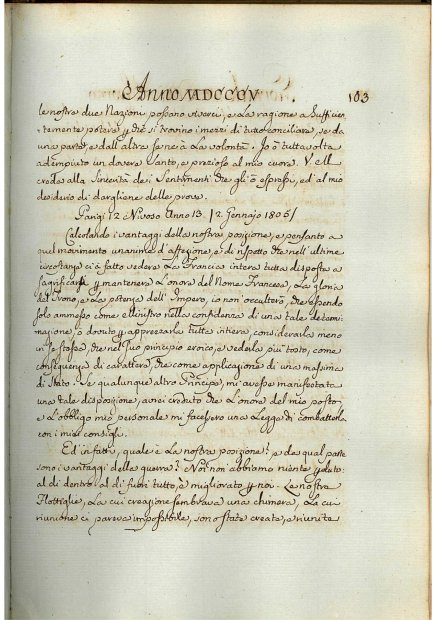 Anno MDCCCV. 103
le nostre due Nazioni possano viverci, e La ragione a Sufficien,
,temente potere, pche si trovino i mezzi di tutto conciliare, se da
una parte, e dall'altra se ne à La volontà. Io ò tutta volta
adempiuto un dovere Santo, e prezioso al mio cuore. V. M.
creda alla Sincerità dei Sentimenti che gli ò espressi, ed al mio
desiderio di dargliene delle prove.
Parigi 12 Nivoso Anno 13. | 2. Gennajo 1805 |
Calcolando i vantaggi della nostra posizione, e pensando a
quel movimento unanime d'affezione, e di rispetto che nell'ultime
circostanze ci à fatto vedere La Francia intera tutta disposta a
sagrificarsi p mantenere L'onore del Nome Francese, La gloria
del Trono, e La potenza dell'Impero, io non occulterò, che essendo
solo ammesso come Ministro nella confidenza di una tale determi,
,nazione, ò dovuto p apprezzarla tutta intiera, considerarla meno
in se stessa, che nel suo principio eroico, e vederla piu tosto, come
conseguenza di carattere, che come applicazione di una massima
di Stato. Se qualunque altro Principe, mi avesse manifestata
una tale disposizione, avrei creduto che L'onore del mio posto
e L'obbligo mio personale mi facessero una Legge di combatterla
con i miei consigli.
Ed infatti, quale è La nostra posizione? e da qual parte
sono i vantaggi della guerra? Noi non abbiamo niente pduto:
al di dentro, al di fuori tutto, è migliorato p noi. Le nostre
Flottiglie, La cui creazione sembrava una chimera, Le cui
riunione ci pareva impossibile, sono state create, e riunite